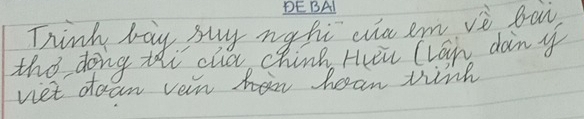 ĐỀ BÀI
Trình bày suy nghĩ của em về bài
thơ đồng chí của chính Hữu (Lập dàn ý
viết đoạn văn hoàn trình